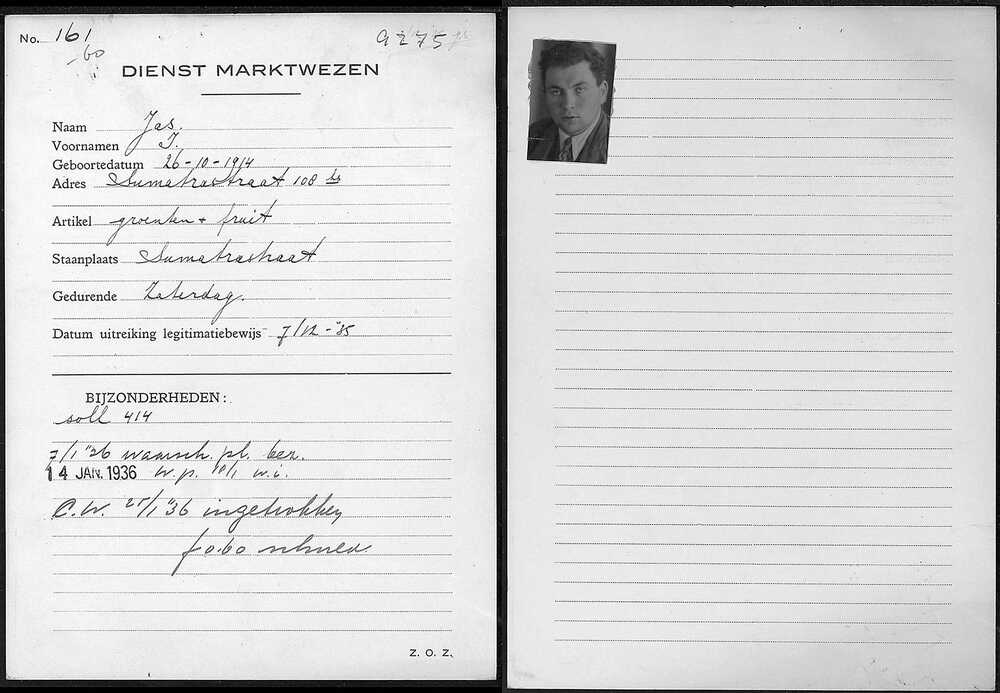 No. 161
-60
9275
DIENST MARKTWEZEN
Naam Jas.
Voornamen I.
Geboortedatum 26-10-1914
Adres Sumatrastraat 108 hs
Artikel groenten + fruit
Staanplaats Sumatrastraat
Gedurende Zaterdag.
Datum uitreiking legitimatiebewijs 7/12-'35
BIJZONDERHEDEN:
soll 414
7/1 '36 waarsch. pl. bez.
14 JAN. 1936 w.p. 18/1 w.i.
C.W. 25/1 '36 ingetrokken
f 0.60 schuld
Z. O. Z.